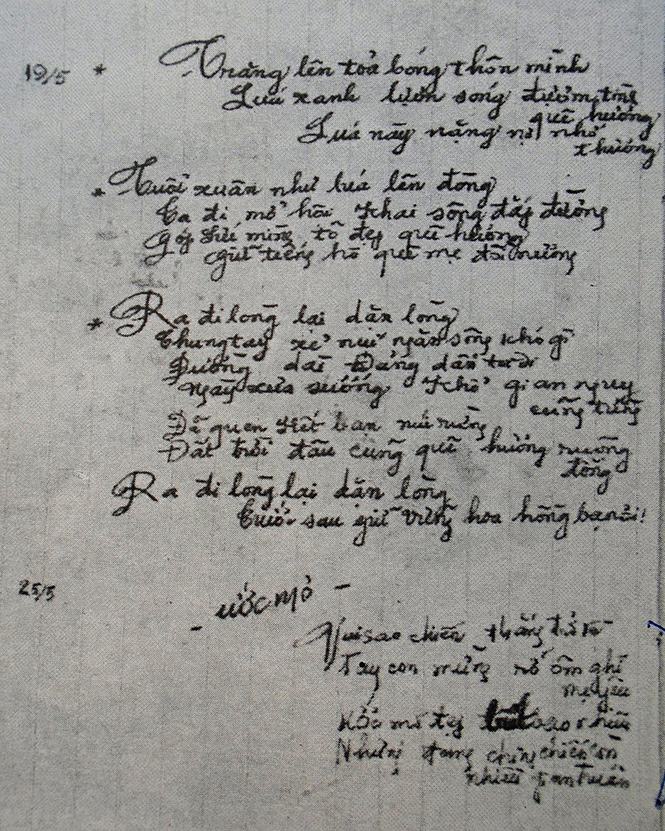 19/5 * Trăng lên toả bóng thôn mình
Lúa xanh lượn sóng đượm tình
quê hương
Lúa này nặng nợ nhớ
thương
* Tuổi xuân như lúa lên đòng
Ta đi mồ hôi khai sông đắp đường
Góp sức mình tô đẹp quê hương
Giữ tiếng hò quê mẹ
* Ra đi lòng lại dặn lòng
Chung tay xẻ núi ngăn sông khó gì
Đường dài Đảng dẫn ta đi
Ngày xưa sướng khổ gian nguy
cũng từng
Đã quen hết bạn núi rừng
Đất trời đâu cũng quê hương ruộng
đồng
Ra đi lòng lại dặn lòng
Trước sau giữ vững hoa hồng bạn ơi!
25/5
- ước mơ -
Vui sao chiến thắng trở về
Tay con mừng rỡ ôm ghì
mẹ yêu
Ước mơ đẹp biết bao nhiêu
Nhưng đang chiến còn
nhiều gian truân